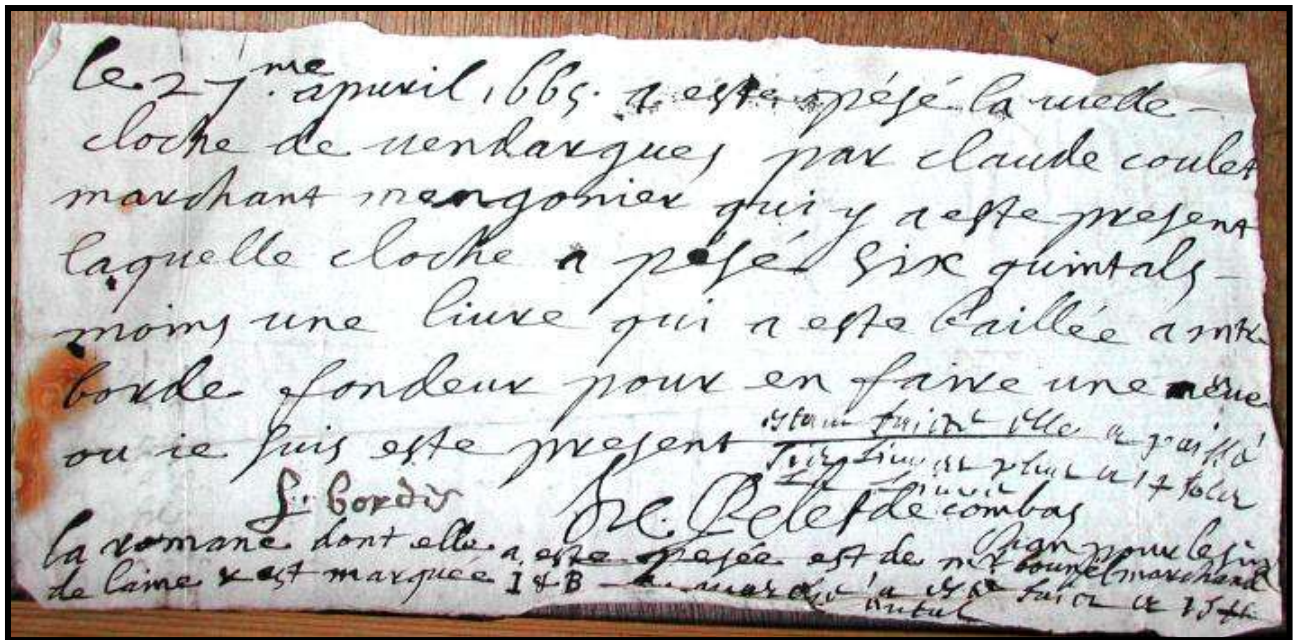 le 27.me apuril 1665. a este pésé la uielle
cloche de uendargues par claude coulet
marchant mangonier qui y a este present
laquelle cloche a pésé six quintals
moins une liure qui a este baillée a mtre
borde fondeur pour en faire une neue
ou ie suis este present
estant faicte elle a
plus a 14 solz
bordes
Pelet de combas
la romane dont elle a este pesée est de mr bounel marchand
de laine & est marquée I & B